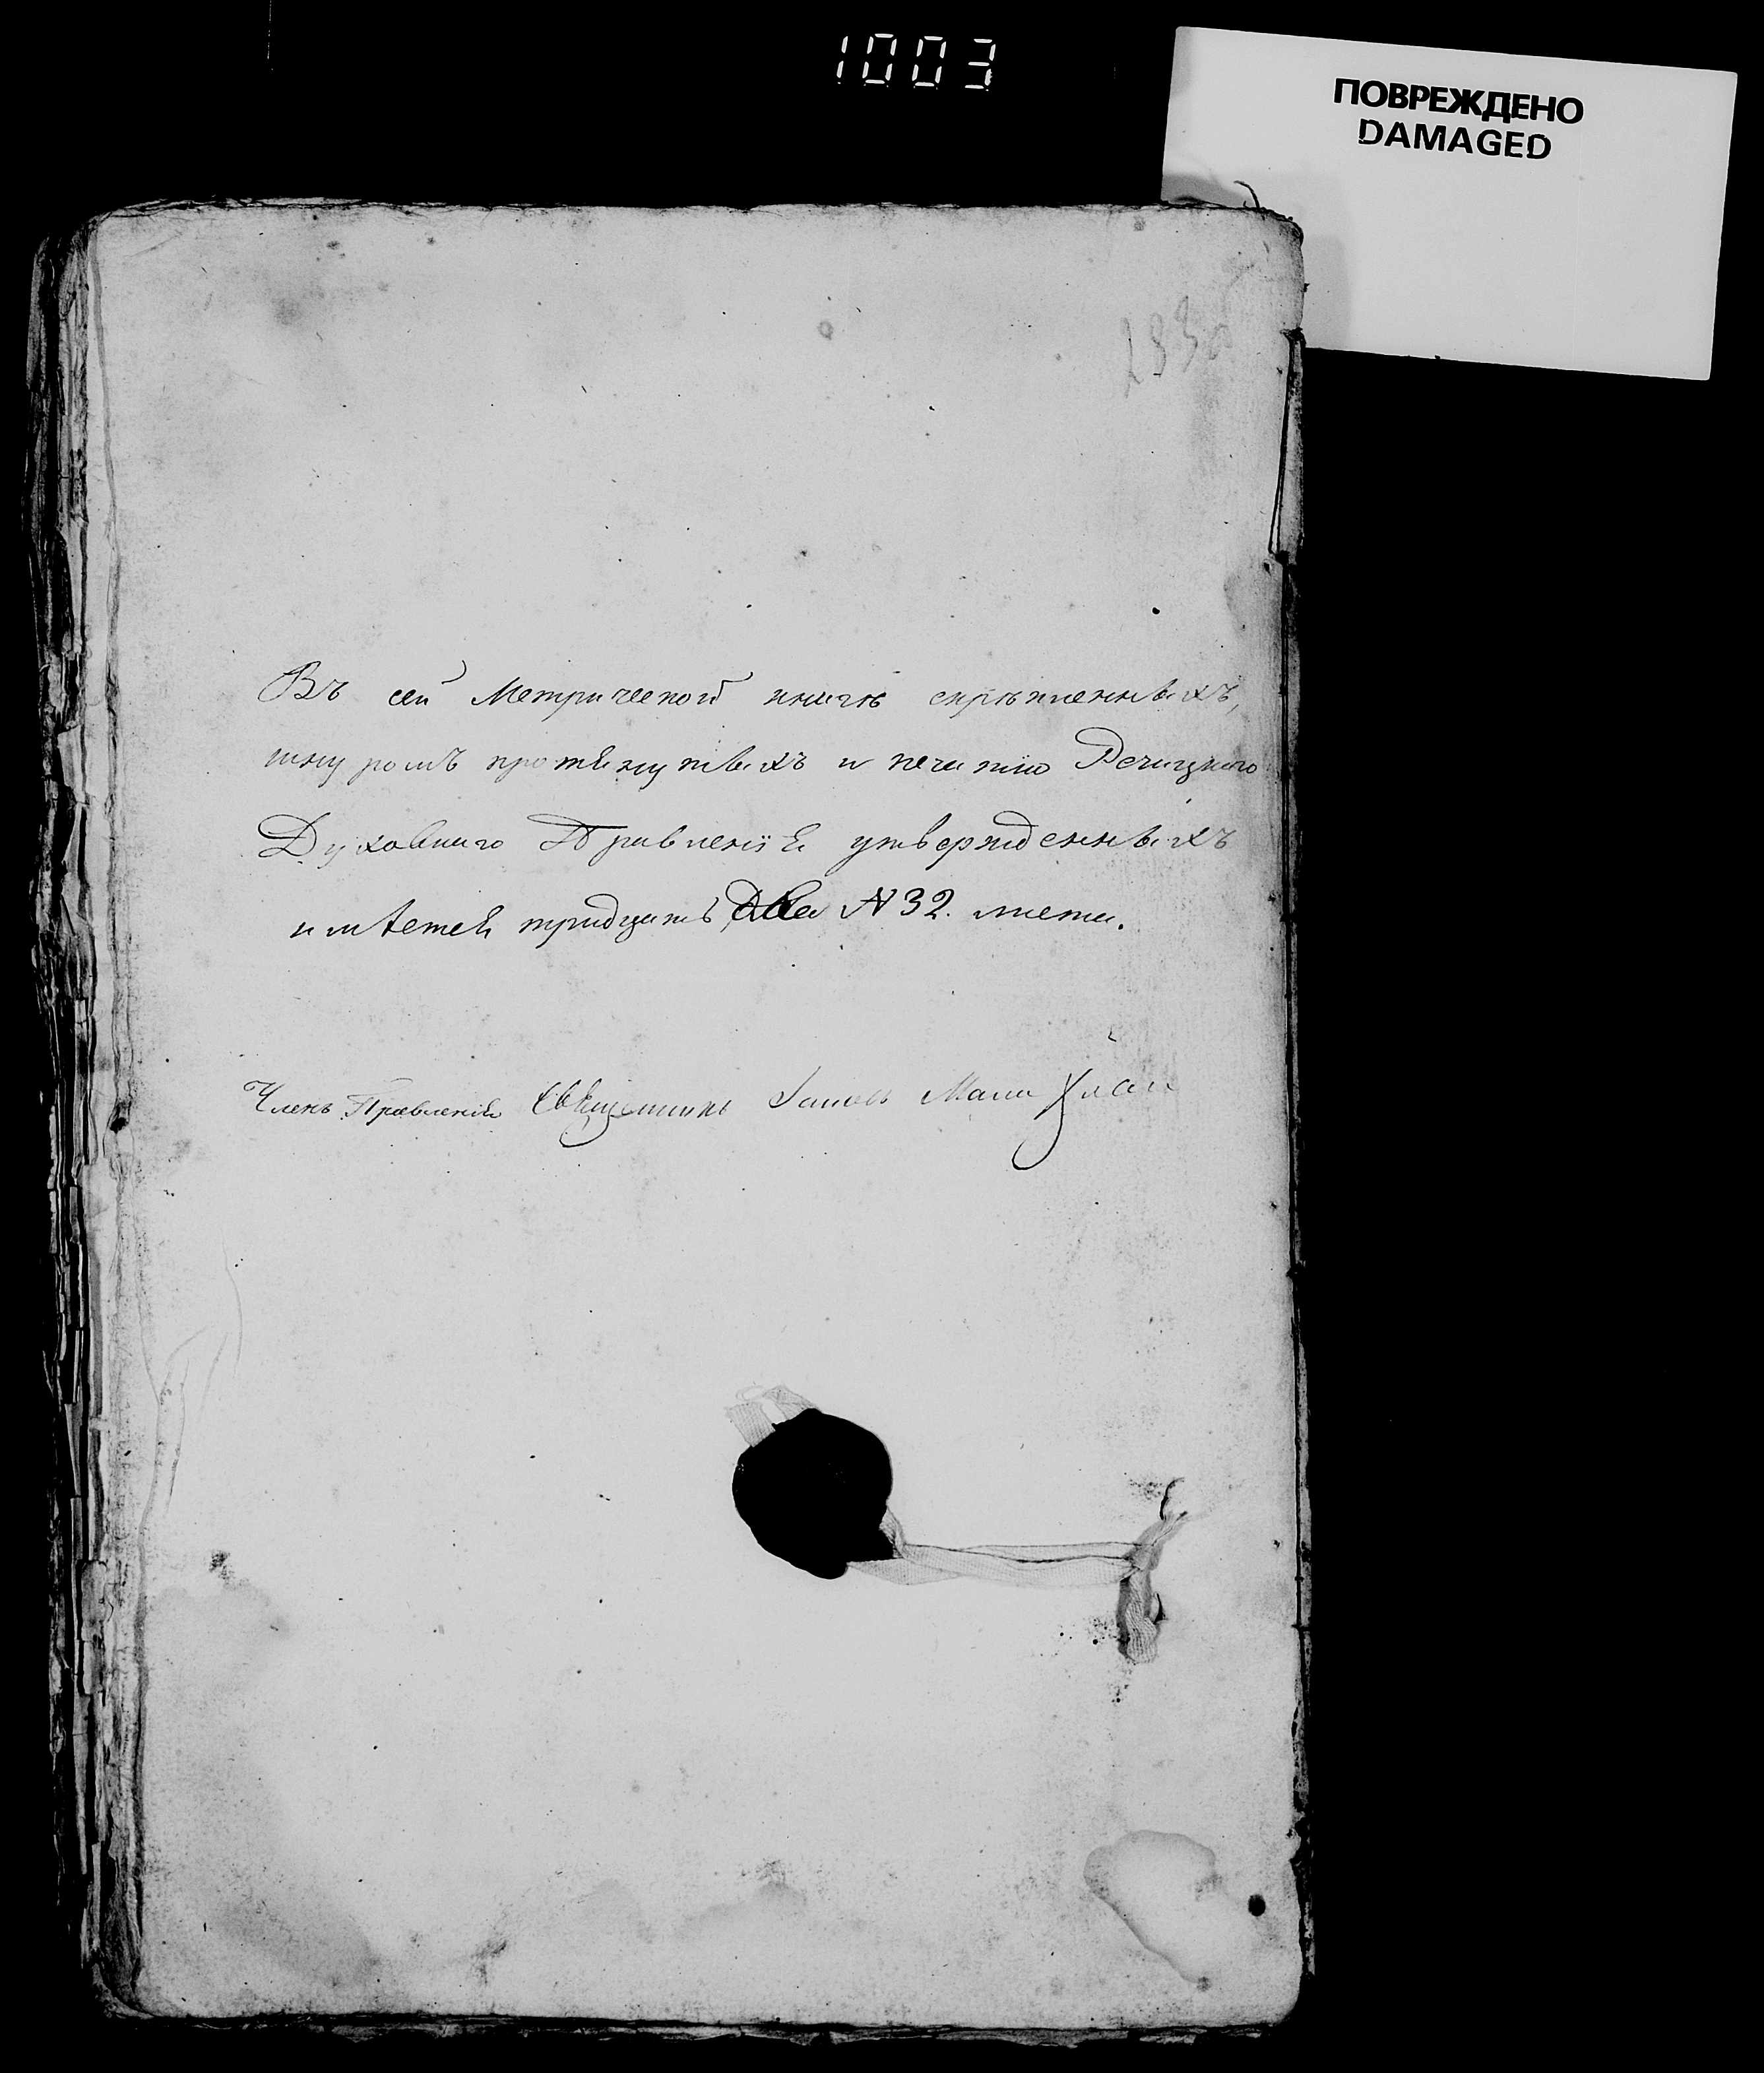 1003
ПОВРЕЖДЕНО
DAMAGED
Въ сей Метрической книгѣ скрѣпленныхъ,
шнуромъ протянутыхъ и печатію Речицкаго
Духовнаго Правленія утвержденныхъ
имѣется тридцать два №32. листа.
Членъ Правленія Священникъ Іаковъ